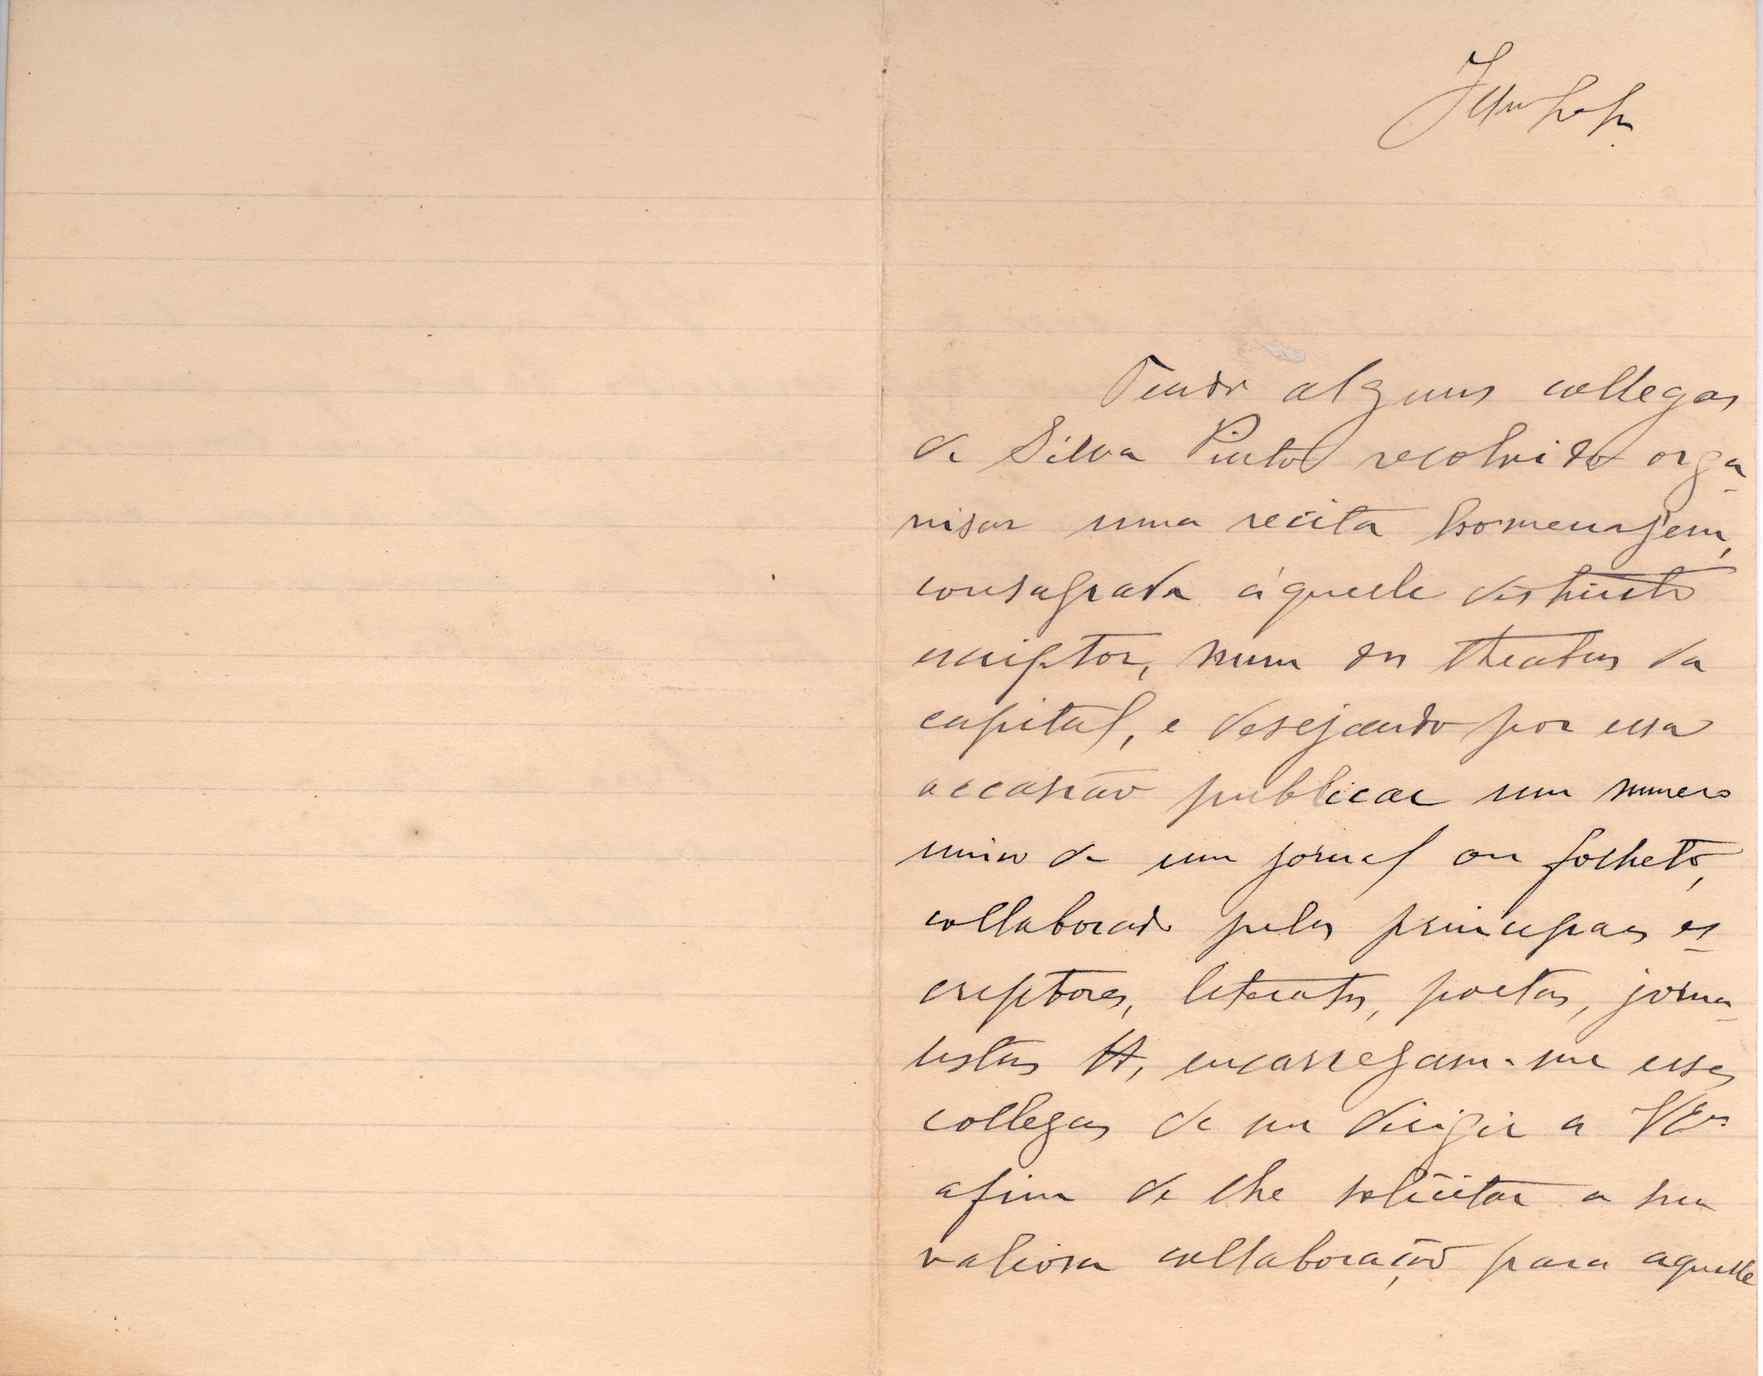 Tendo alguns collegas
de Silva Pinto resolvido orga-
nisar uma recita homenagem,
consagrada áquelle distincto
escriptor, num dos theatros da
capital, e desejando por essa
occasião publicar um numero
unico de um jornal ou folheto,
collaborado pelos principaes es-
criptores, literatos, poetas, jorna-
listas &, encarregam-me esses
collegas de me dirigir a V Ex.ª
afim de lhe solicitar a sua
valiosa collaboração para aquelle